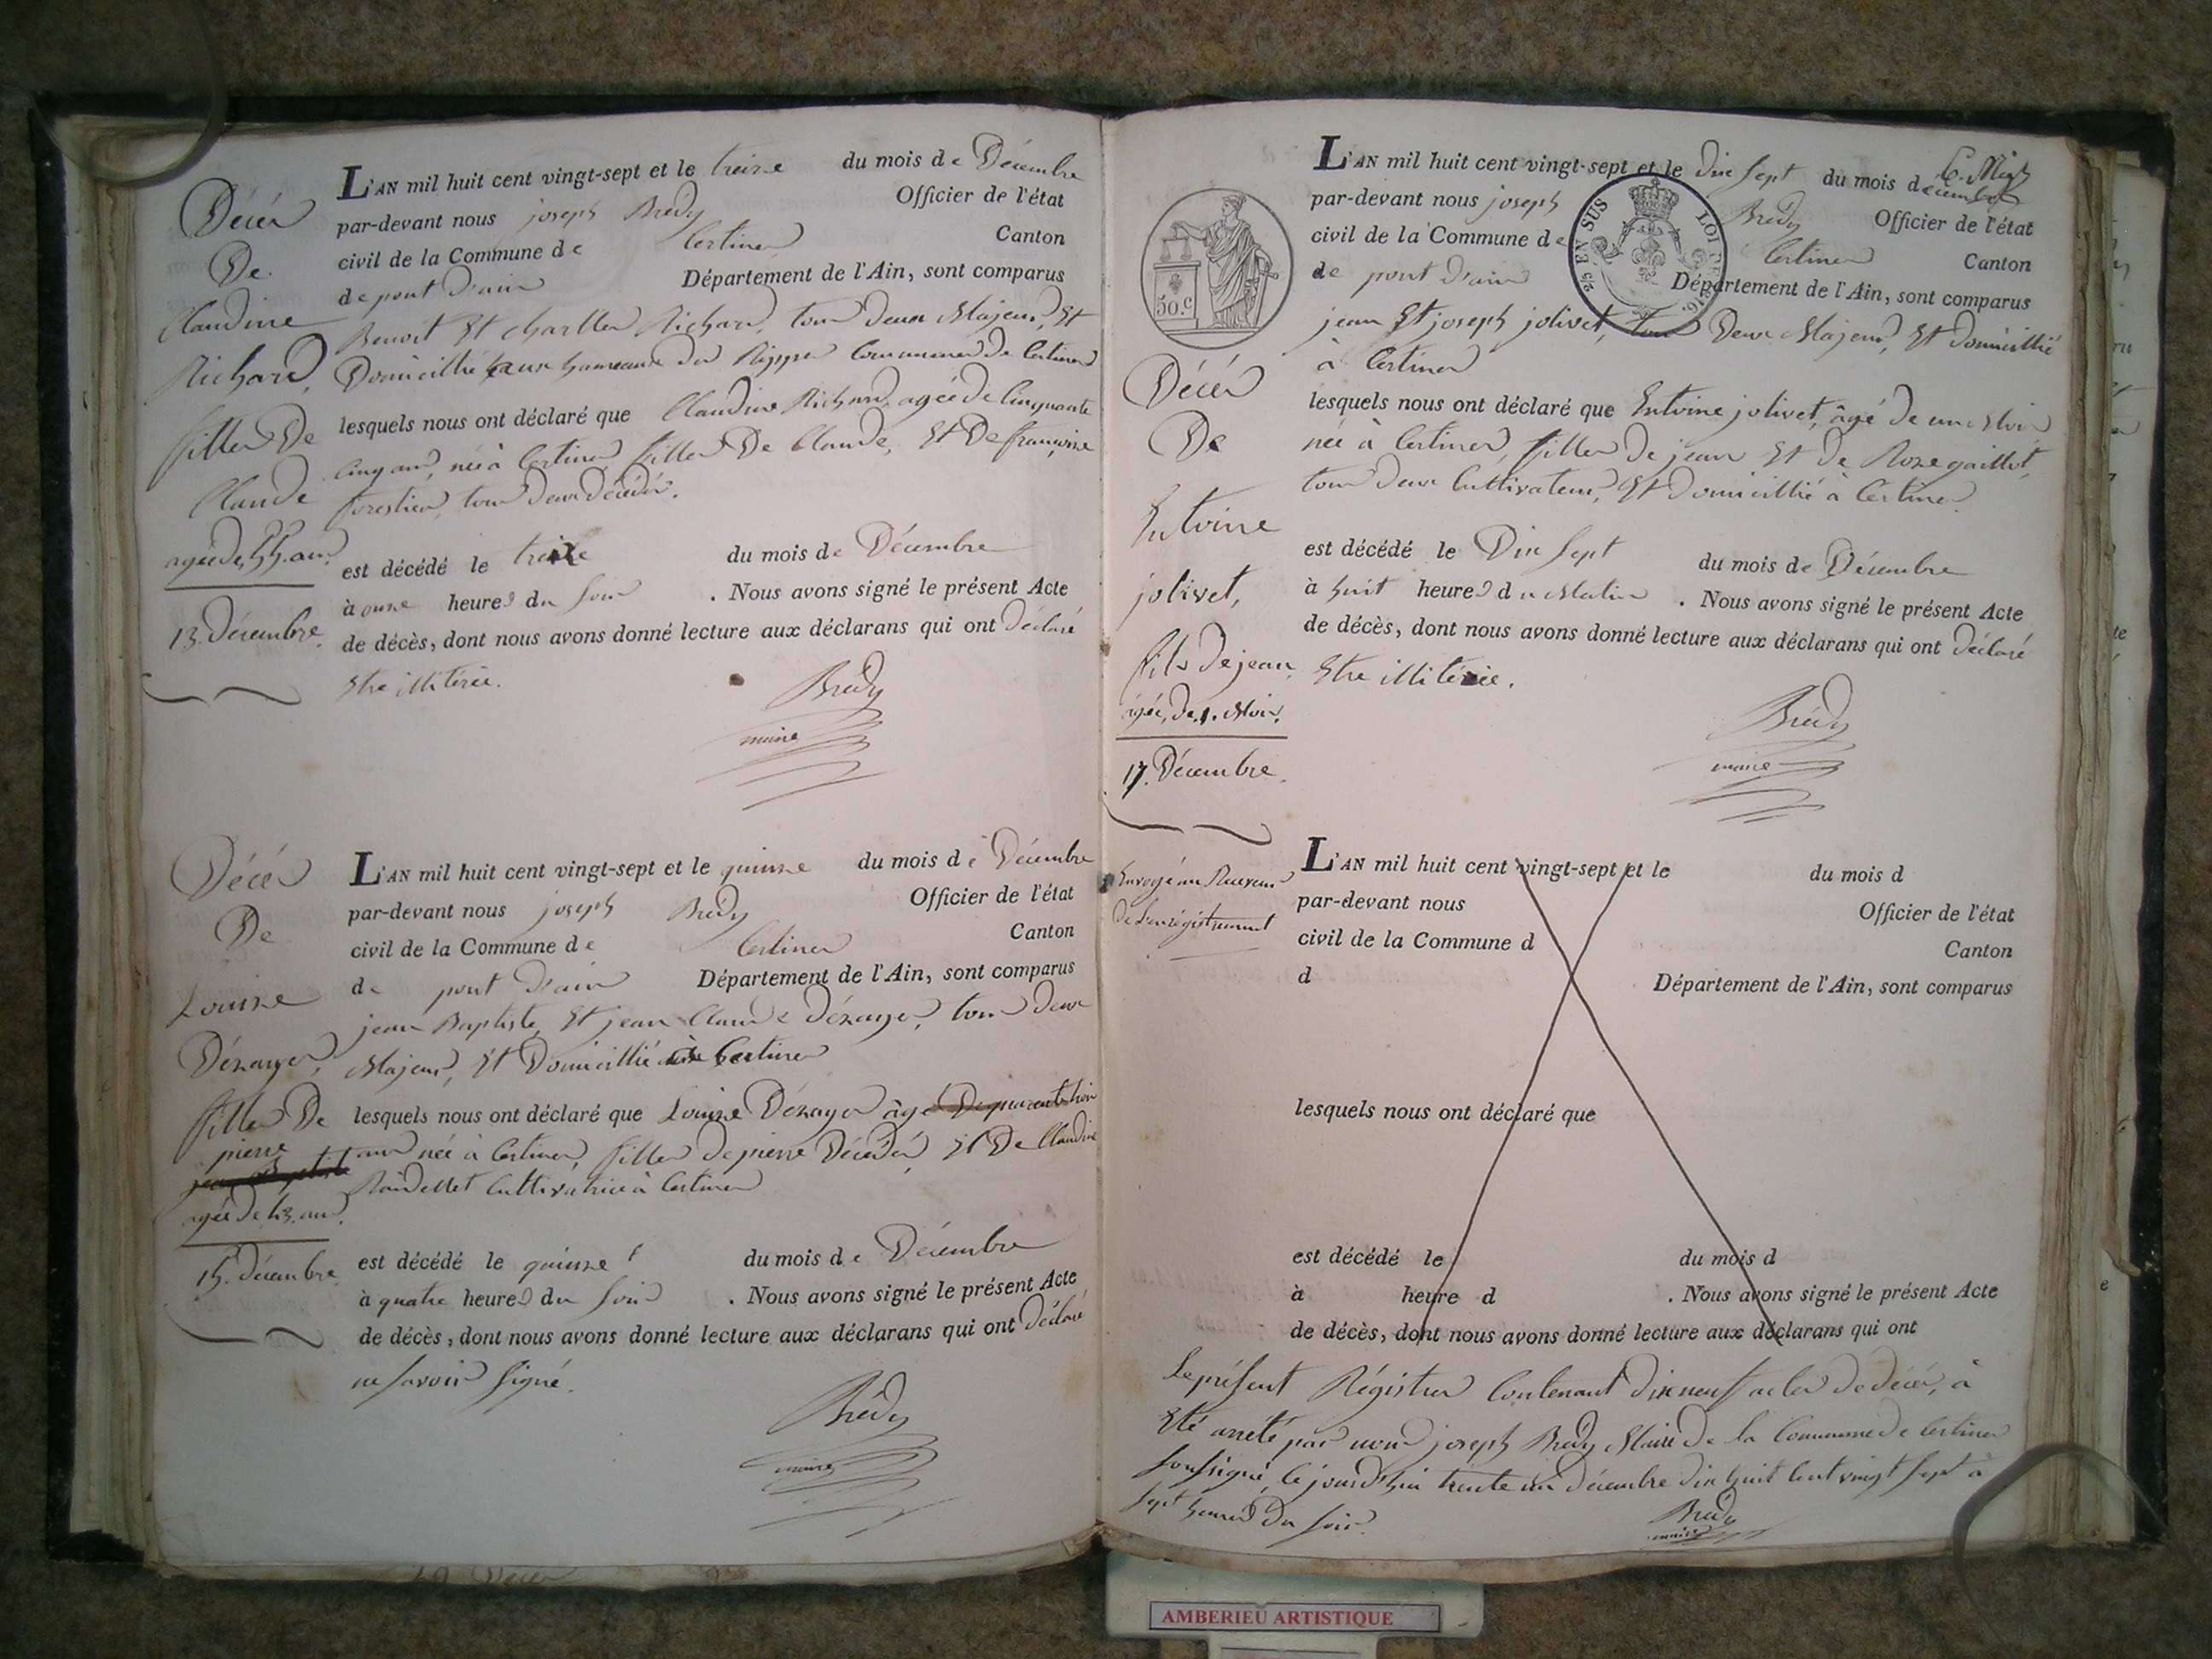 Décès
De
Claudine
Richard,
fille De
Claude
agée de 55. ans.
13. Décembre.
L'AN mil huit cent vingt-sept et le treize du mois de Décembre
par-devant nous joseph Brédy Officier de l'état
civil de la Commune de Certines Canton
de pont d'ain Département de l'Ain, sont comparus
Benoit Et Charles Richard, tous deux Majeurs, Et
Domicillié aux hameaux des Rippes Commune de Certines
lesquels nous ont déclaré que Claudine Richard, agée de Cinquante
Cinq ans, née à Certines, fille De Claude, Et De françoise
forestier, tous deux décédés.
est décédé le treize du mois de Décembre
à onze heures du soir . Nous avons signé le présent Acte
de décès, dont nous avons donné lecture aux déclarans qui ont Déclaré
Etre illitérée.
Brédy
maire
Décès
De
Louise
Dézayes,
fille De
pierre
agée de 43. ans.
15. décembre
L'AN mil huit cent vingt-sept et le quinze du mois de Décembre
par-devant nous joseph Brédy Officier de l'état
civil de la Commune de Certines Canton
de pont d'ain Département de l'Ain, sont comparus
jean Baptiste, Et jean Claude Dézayes, tous deux
Majeurs, Et Domicillié à Certines
lesquels nous ont déclaré que Louise Dézayes âgé De quarante trois
ans née à Certines, fille de pierre Décédé, Et De Claudine
Cultivatrice à Certines
est décédé le quinze du mois de Décembre
à quatre heures du soir . Nous avons signé le présent Acte
de décès, dont nous avons donné lecture aux déclarans qui ont Déclaré
ne savoir signé.
Brédy
maire
50.c
25 EN SUS LOI DE 1816
Décès
De
Entoine
jolivet,
fils De jean,
agée, De .1. Mois.
17. Décembre.
L'AN mil huit cent vingt-sept et le Dix sept du mois décembre
par-devant nous joseph Brédy Officier de l'état
civil de la Commune de Certines Canton
de pont d'ain Département de l'Ain, sont comparus
jean Et joseph jolivet, tous Deux Majeurs, Et Domicillié
à Certines
lesquels nous ont déclaré que Entoine jolivet, âgé de un Mois
née à Certines, fille De jean Et de Roze gaillot,
tous Deux Cultivateurs, Et domicillié à Certines.
est décédé le Dix sept du mois de Décembre
à huit heures du Matin . Nous avons signé le présent Acte
de décès, dont nous avons donné lecture aux déclarans qui ont Déclaré
Etre illitérée.
Brédy
maire
Envoyé au Receveur
De L'enrégistrement
L'AN mil huit cent vingt-sept et le du mois d
par-devant nous Officier de l'état
civil de la Commune d Canton
d Département de l'Ain, sont comparus
lesquels nous ont déclaré que
est décédé le du mois d
à heure d . Nous avons signé le présent Acte
de décès, dont nous avons donné lecture aux déclarans qui ont
Le présent Régistre Contenant dix neuf actes de décès, à
Eté arreté par nous joseph Brédy Maire De la Commune de Certines
soussigné, Ce jourd'hui trente un décembre dix huit Cent vingt sept à
sept heures Du soir.
Brédy
maire
AMBERIEU ARTISTIQUE